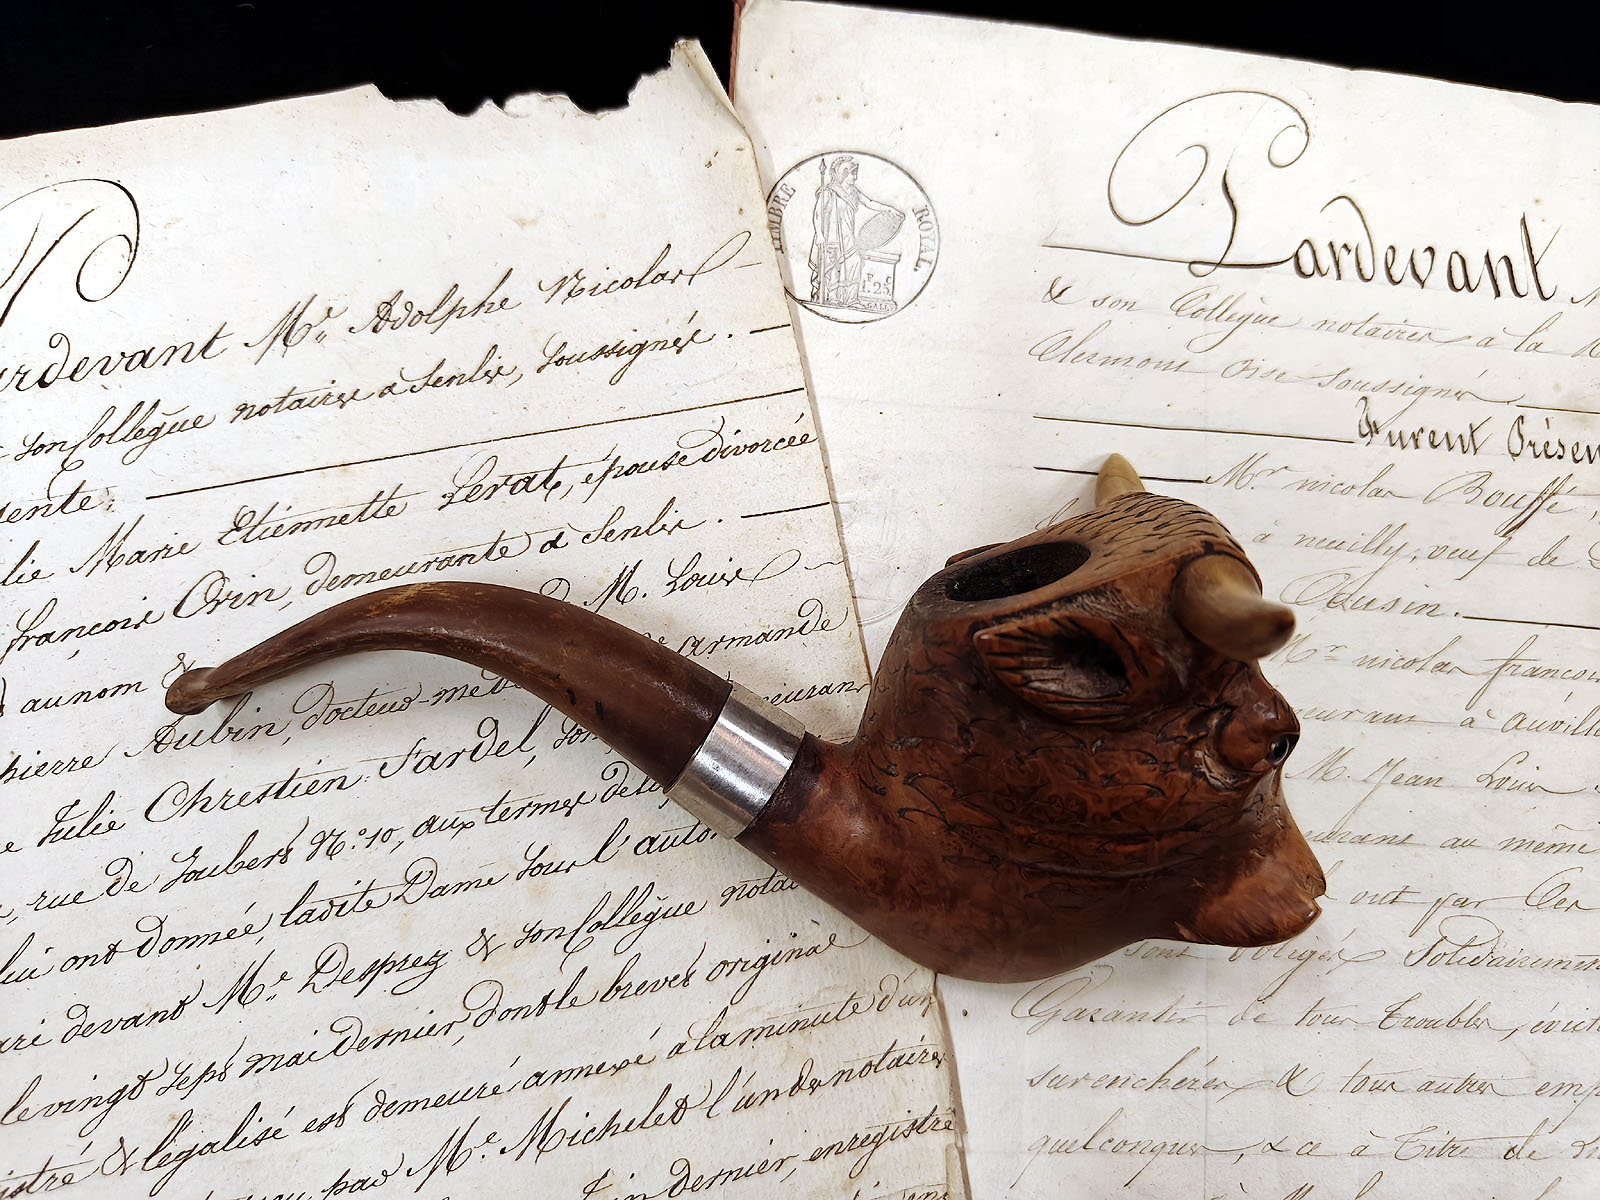 Pardevant Me. Adolphe Nicolas
son Collègue notaires à Senlis, soussignés.
Marie Etiennette Lerat, épouse divorcée
françois Orin, demeurante à Senlis.
au nom & M. Louis
pierre Aubin, docteur-méd Armande
Julie Chrestien Fardel,
rue de Joubert No. 10, aux termes de
lui ont donnée, ladite Dame sous l'autor
devant Me. Desprez & son Collègue nota
le vingt sept mai dernier, dont le brevet original
& légalisé est demeuré annexé à la minute d'un
par Me. Michelet l'un des notaires
dernier, enregistré
TIMBRE ROYAL
1.25
Pardevant
& son Collègue notaires à la
Clermont Oise soussignés.
Furent Présen
Mr. nicolas Bouffé,
à neuilly, veuf de
Cousin.
Mr. nicolas françois
à auvill
M. Jean Louis
au même
ont par Ces
sont obligés Solidairement
Garantir de tous troubles,
surenchères & tous autres emp
quelconques, & ce à titre de